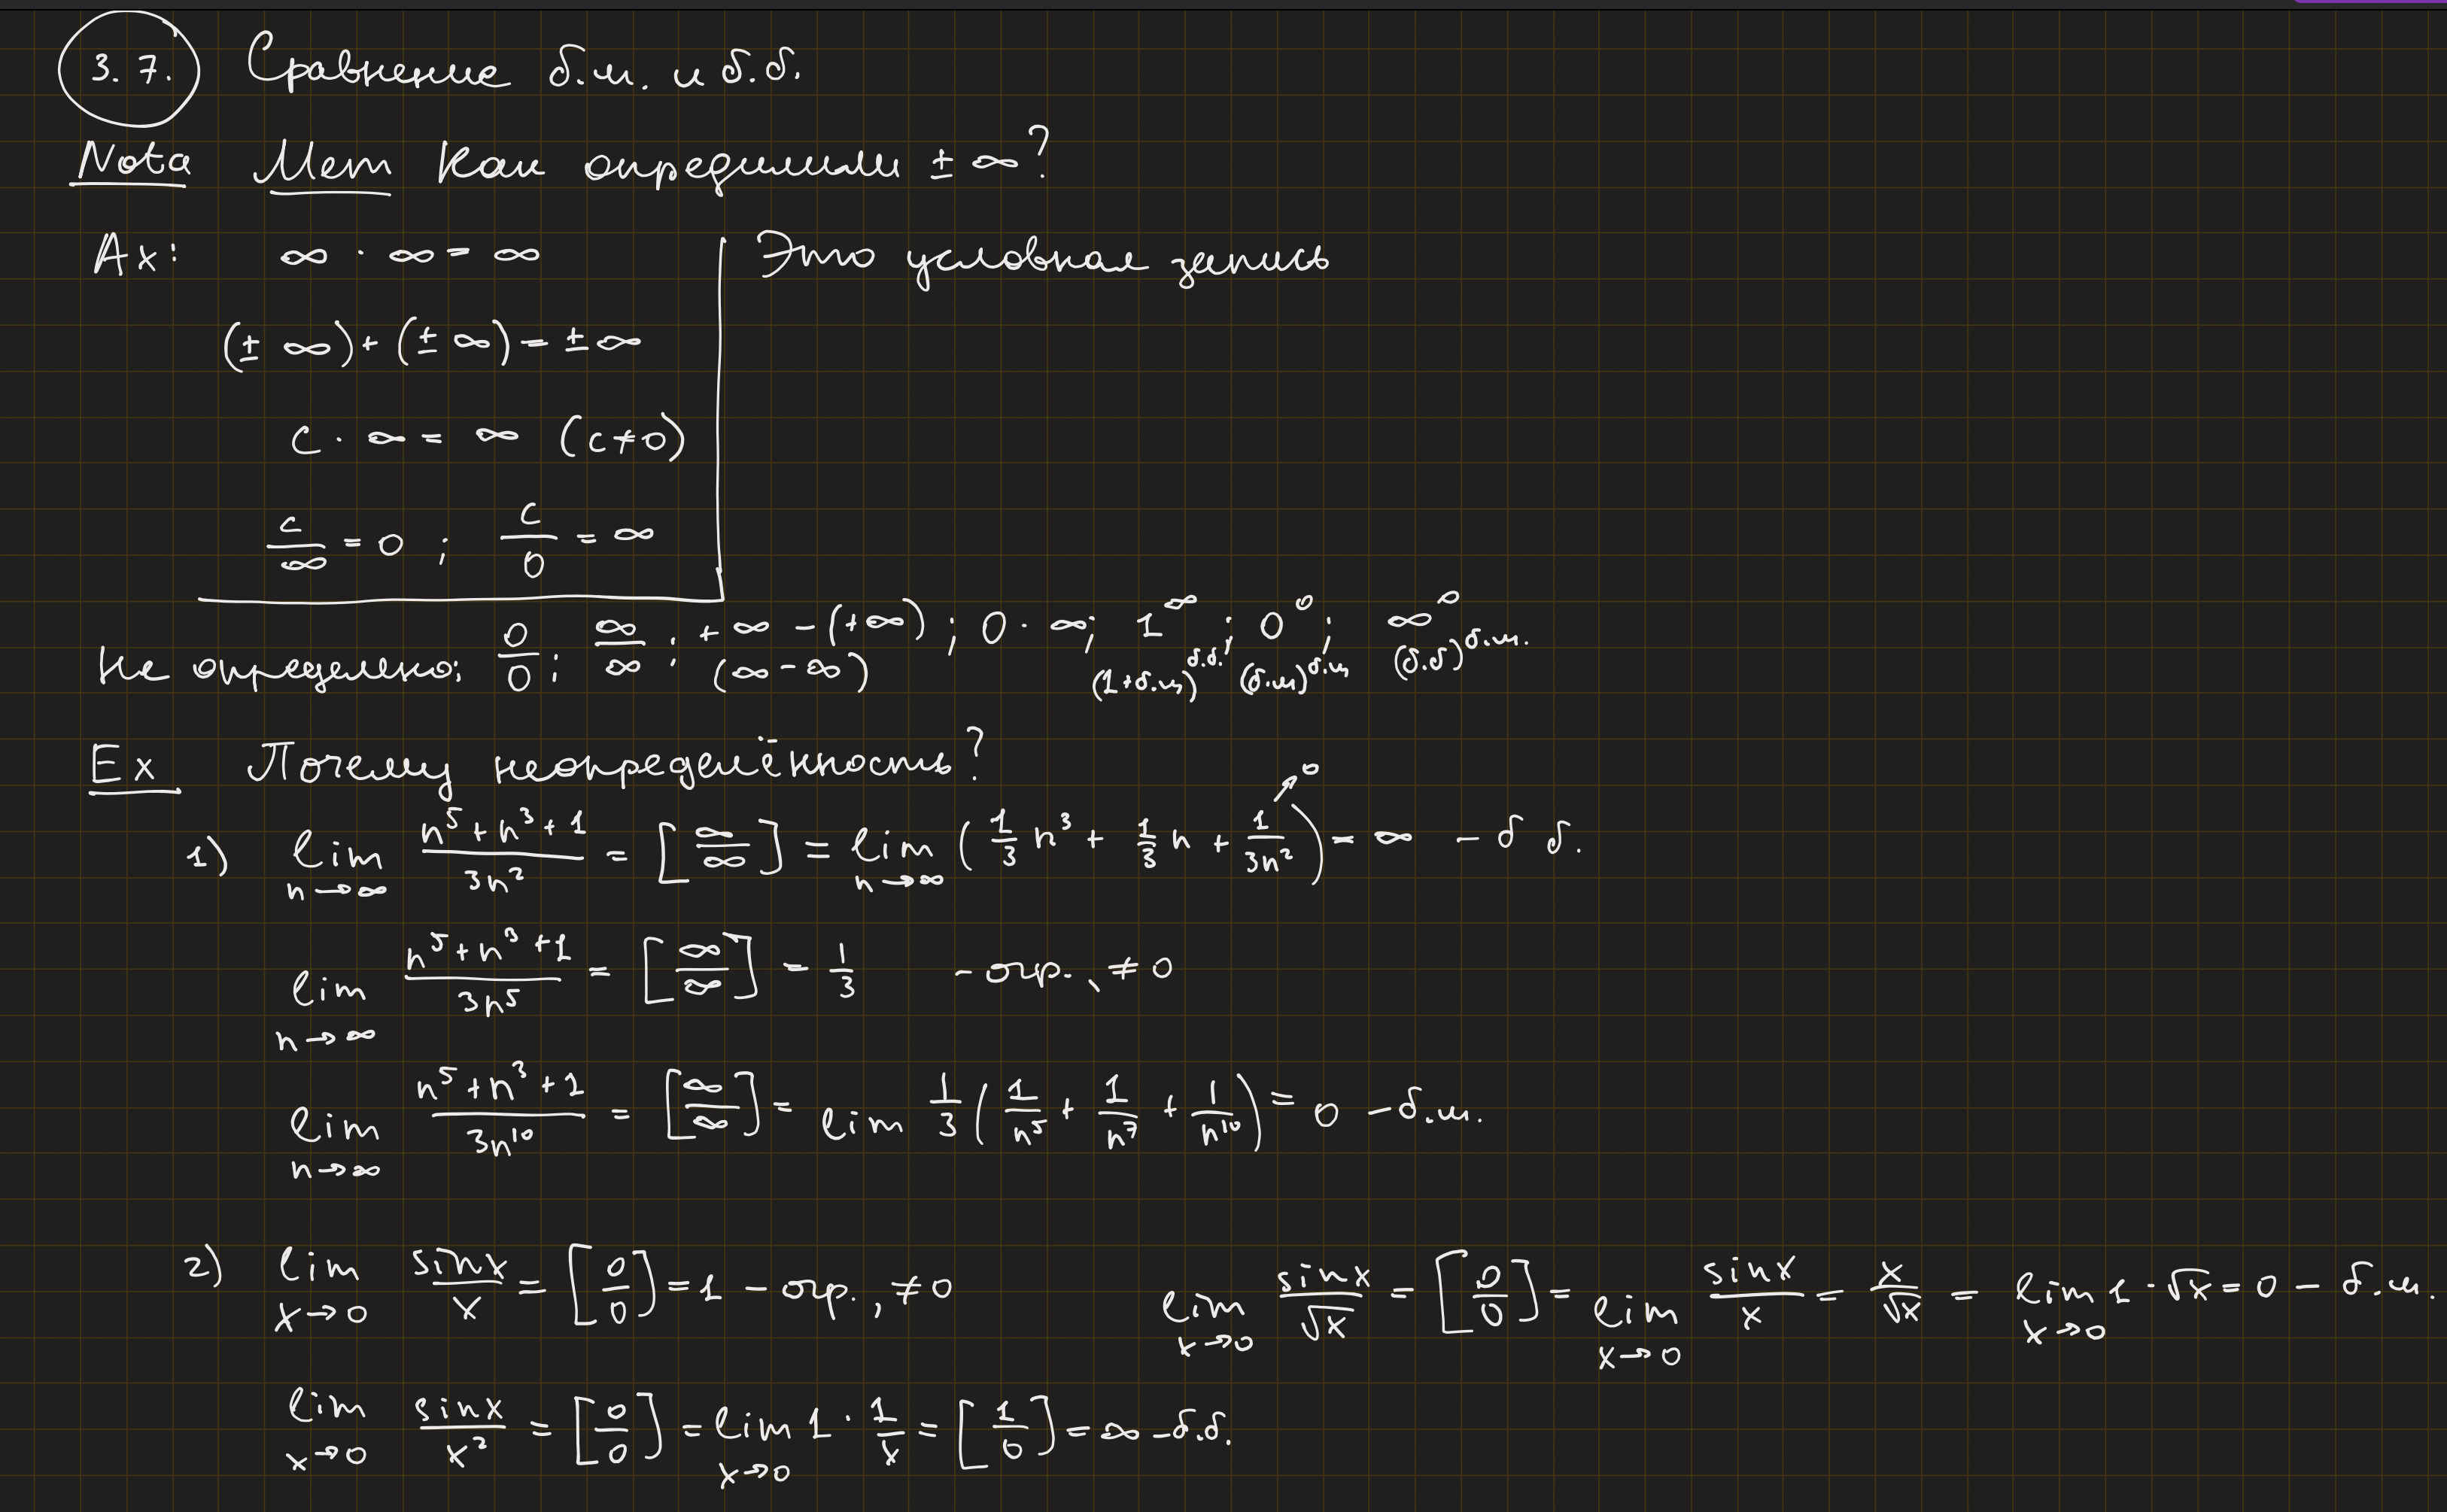 3.7. Сравнение б.м. и б.б.
Nota Мет Как определили ± ∞?
Ax: ∞ · ∞ = ∞ Это условная запись
(± ∞) + (± ∞) = ± ∞
c · ∞ = ∞ (c ≠ 0)
c/∞ = 0 ; c/0 = ∞
Не определено: 0/0 ; ∞/∞ ; +∞ - (+∞) ; 0 · ∞ ; 1^∞ ; 0^0 ; ∞^0
(∞ - ∞) (1+б.м)^б.б. (б.м)^б.м (б.б)^б.м.
Ex Почему неопределённость?
1) lim n→∞ (n^5 + n^3 + 1)/(3n^2) = [∞/∞] = lim n→∞ (1/3 n^3 + 1/3 n + 1/(3n^2) ↗0) = ∞ - б б.
lim n→∞ (n^5 + n^3 + 1)/(3n^5) = [∞/∞] = 1/3 - огр., ≠ 0
lim n→∞ (n^5 + n^3 + 1)/(3n^10) = [∞/∞] = lim 1/3 (1/n^5 + 1/n^7 + 1/n^10) = 0 - б.м.
2) lim x→0 sinx/x = [0/0] = 1 - огр., ≠ 0 lim x→0 sinx/√x = [0/0] = lim x→0 sinx/x = x/√x = lim x→0 1 · √x = 0 - б.м.
lim x→0 sinx/x^2 = [0/0] = lim x→0 1 · 1/x = [1/0] = ∞ - б.б.